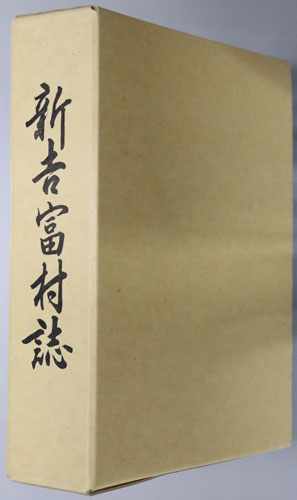 新吉富村誌